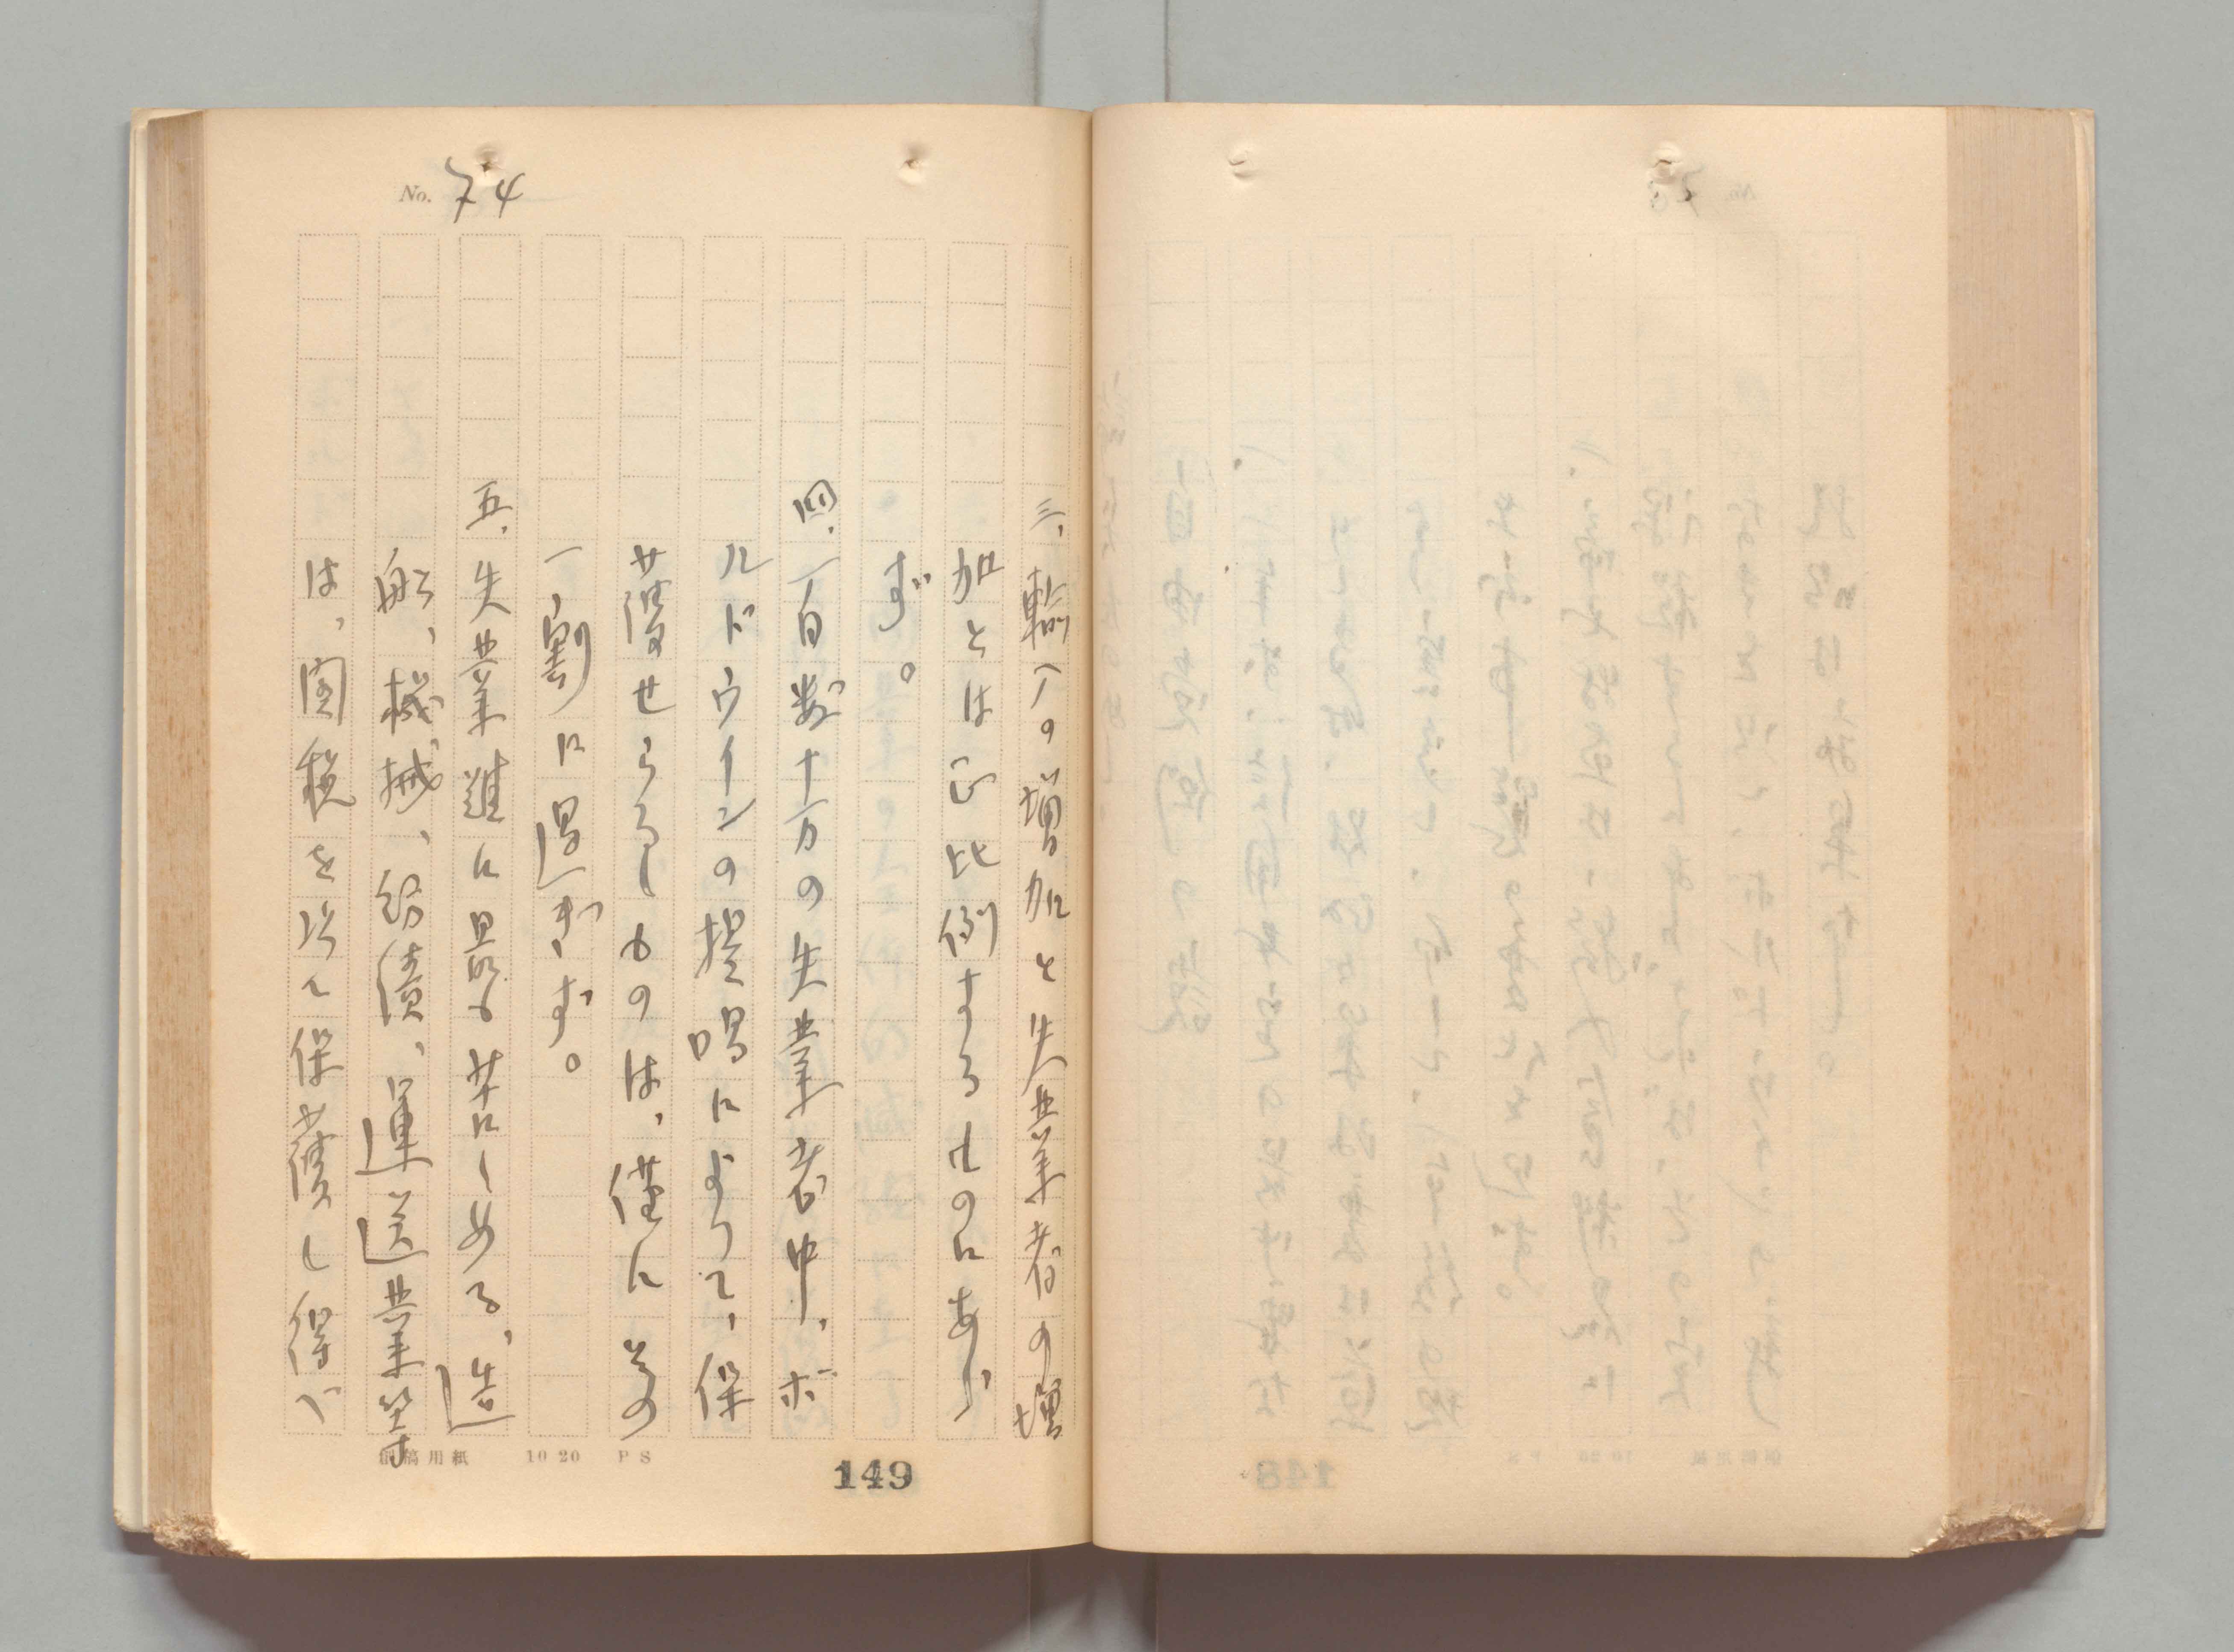 No. 74
三、輸入の増加と失業者の増
加とは正比例するものにあら
ず。
四、一百数十万の失業者中、ボ
ルドウインの提唱によつて、保
護せらるしものは、僅にその
一割に過ぎず。
五、失業難に最も苦しめる、造
船、機械、紡績、運送業等
は、関税を以て保護し得べ
原稿用紙 10 20 PS
149